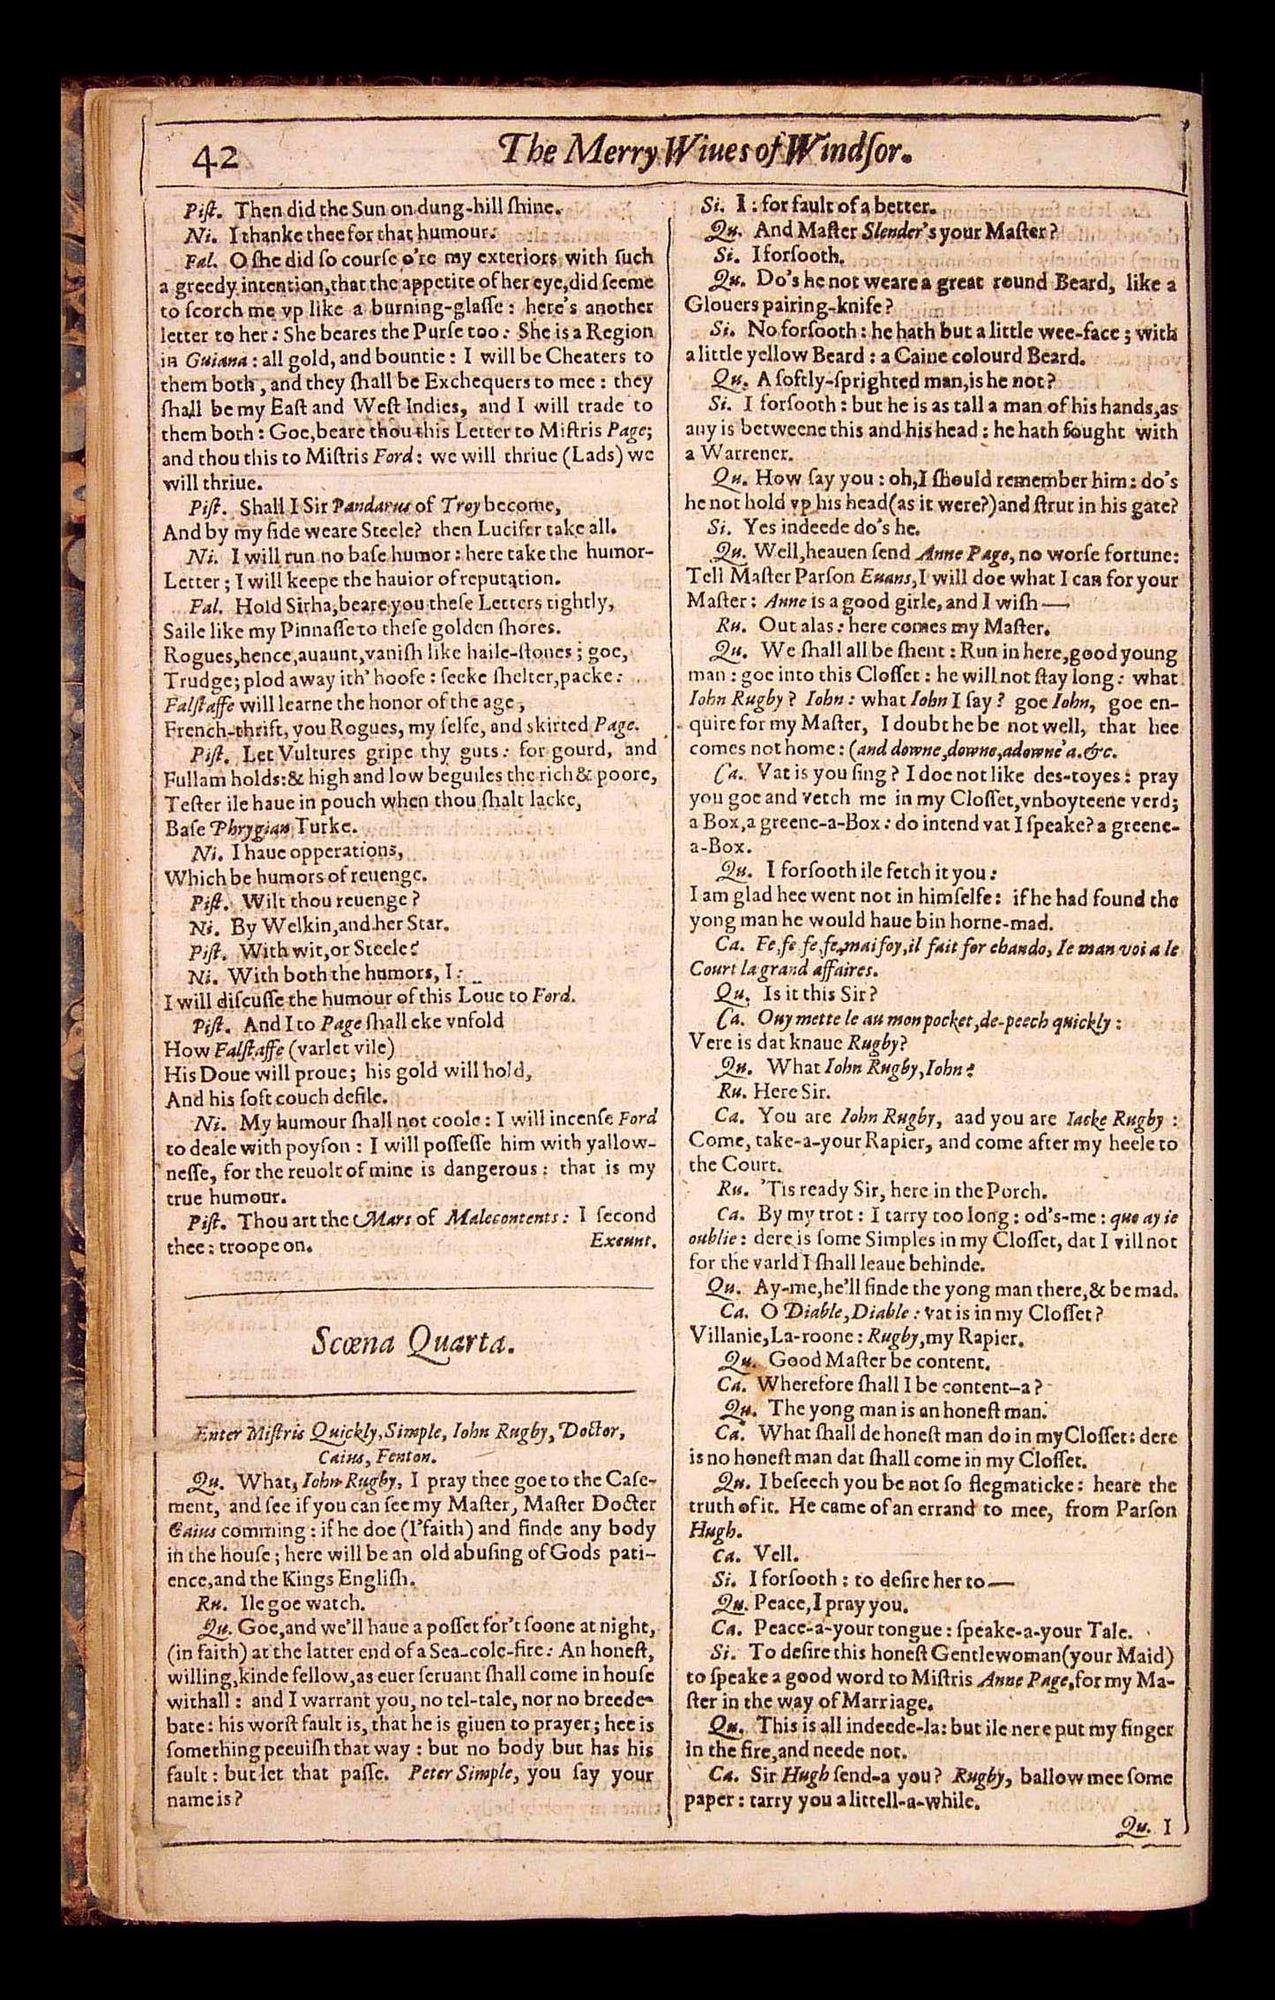 42
The Merry Wiues of Windſor.
Piſt. Then did the Sun on dung-hill ſhine.
Ni. I thanke thee for that humour.
Fal. O ſhe did ſo courſe o're my exteriors with ſuch
a greedy intention, that the appetite of her eye, did ſeeme
to ſcorch me vp like a burning-glaſſe: here's another
letter to her: She beares the Purſe too: She is a Region
in Guiana: all gold, and bountie: I will be Cheaters to
them both, and they ſhall be Exchequers to mee: they
ſhall be my Eaſt and Weſt Indies, and I will trade to
them both: Goe, beare thou this Letter to Miſtris Page;
and thou this to Miſtris Ford: we will thriue (Lads) we
will thriue.
Piſt. Shall I Sir Pandarus of Troy become,
And by my ſide weare Steele? then Lucifer take all.
Ni. I will run no baſe humor: here take the humor-
Letter; I will keepe the hauior of reputation.
Fal. Hold Sirha, beare you theſe Letters tightly,
Saile like my Pinnaſſe to theſe golden ſhores.
Rogues, hence, auaunt, vaniſh like haile-ſtones; goe,
Trudge; plod away ith' hoofe: ſeeke ſhelter, packe:
Falſtaffe will learne the honor of the age,
French-thrift, you Rogues, my ſelfe, and skirted Page.
Piſt. Let Vultures gripe thy guts: for gourd, and
Fullam holds: & high and low beguiles the rich & poore,
Teſter ile haue in pouch when thou ſhalt lacke,
Baſe Phrygian Turke.
Ni. I haue opperations,
Which be humors of reuenge.
Piſt. Wilt thou reuenge?
Ni. By Welkin, and her Star.
Piſt. With wit, or Steele?
Ni. With both the humors, I:
I will diſcuſſe the humour of this Loue to Ford.
Piſt. And I to Page ſhall eke vnfold
How Falſtaffe (varlet vile)
His Doue will proue; his gold will hold,
And his ſoft couch defile.
Ni. My humour ſhall not coole: I will incenſe Ford
to deale with poyſon: I will poſſeſſe him with yallow-
neſſe, for the reuolt of mine is dangerous: that is my
true humour.
Piſt. Thou art the Mars of Malecontents: I ſecond
thee: troope on. Exeunt.
Scœna Quarta.
Enter Miſtris Quickly, Simple, Iohn Rugby, Doctor,
Caius, Fenton.
Qu. What, Iohn Rugby, I pray thee goe to the Caſe-
ment, and ſee if you can ſee my Maſter, Maſter Docter
Caius comming: if he doe (I'faith) and finde any body
in the houſe; here will be an old abuſing of Gods pati-
ence, and the Kings Engliſh.
Ru. Ile goe watch.
Qu. Goe, and we'll haue a poſſet for't ſoone at night,
(in faith) at the latter end of a Sea-cole-fire: An honeſt,
willing, kinde fellow, as euer ſeruant ſhall come in houſe
withall: and I warrant you, no tel-tale, nor no breede-
bate: his worſt fault is, that he is giuen to prayer; hee is
ſomething peeuiſh that way: but no body but has his
fault: but let that paſſe. Peter Simple, you ſay your
name is?
Si. I: for fault of a better.
Qu. And Maſter Slender's your Maſter?
Si. I forſooth.
Qu. Do's he not weare a great round Beard, like a
Glouers pairing-knife?
Si. No forſooth: he hath but a little wee-face; with
a little yellow Beard: a Caine colourd Beard.
Qu. A ſoftly-ſprighted man, is he not?
Si. I forſooth: but he is as tall a man of his hands, as
any is betweene this and his head: he hath fought with
a Warrener.
Qu. How ſay you: oh, I ſhould remember him: do's
he not hold vp his head (as it were?) and ſtrut in his gate?
Si. Yes indeede do's he.
Qu. Well, heauen ſend Anne Page, no worſe fortune:
Tell Maſter Parſon Euans, I will doe what I can for your
Maſter: Anne is a good girle, and I wiſh —
Ru. Out alas: here comes my Maſter.
Qu. We ſhall all be ſhent: Run in here, good young
man: goe into this Cloſſet: he will not ſtay long: what
Iohn Rugby? Iohn: what Iohn I ſay? goe Iohn, goe en-
quire for my Maſter, I doubt he be not well, that hee
comes not home: (and downe, downe, adowne'a. &c.
Ca. Vat is you ſing? I doe not like des-toyes: pray
you goe and vetch me in my Cloſſet, vnboyteene verd;
a Box, a greene-a-Box: do intend vat I ſpeake? a greene-
a-Box.
Qu. I forſooth ile fetch it you:
I am glad hee went not in himſelfe: if he had found the
yong man he would haue bin horne-mad.
Ca. Fe, fe, fe, fe, mai foy, il fait for ehando, Ie man voi a le
Court la grand affaires.
Qu. Is it this Sir?
Ca. Ouy mette le au mon pocket, de-peech quickly:
Vere is dat knaue Rugby?
Qu. What Iohn Rugby, Iohn?
Ru. Here Sir.
Ca. You are Iohn Rugby, aad you are Iacke Rugby:
Come, take-a-your Rapier, and come after my heele to
the Court.
Ru. 'Tis ready Sir, here in the Porch.
Ca. By my trot: I tarry too long: od's-me: que ay ie
oublie: dere is ſome Simples in my Cloſſet, dat I vill not
for the varld I ſhall leaue behinde.
Qu. Ay-me, he'll finde the yong man there, & be mad.
Ca. O Diable, Diable: vat is in my Cloſſet?
Villanie, La-roone: Rugby, my Rapier.
Qu. Good Maſter be content.
Ca. Wherefore ſhall I be content-a?
Qu. The yong man is an honeſt man.
Ca. What ſhall de honeſt man do in my Cloſſet: dere
is no honeſt man dat ſhall come in my Cloſſet.
Qu. I beſeech you be not ſo flegmaticke: heare the
truth of it. He came of an errand to mee, from Parſon
Hugh.
Ca. Vell.
Si. I forſooth: to deſire her to —
Qu. Peace, I pray you.
Ca. Peace-a-your tongue: ſpeake-a-your Tale.
Si. To deſire this honeſt Gentlewoman (your Maid)
to ſpeake a good word to Miſtris Anne Page, for my Ma-
ſter in the way of Marriage.
Qu. This is all indeede-la: but ile nere put my finger
in the fire, and neede not.
Ca. Sir Hugh ſend-a you? Rugby, ballow mee ſome
paper: tarry you a littell-a-while.
Qu. I